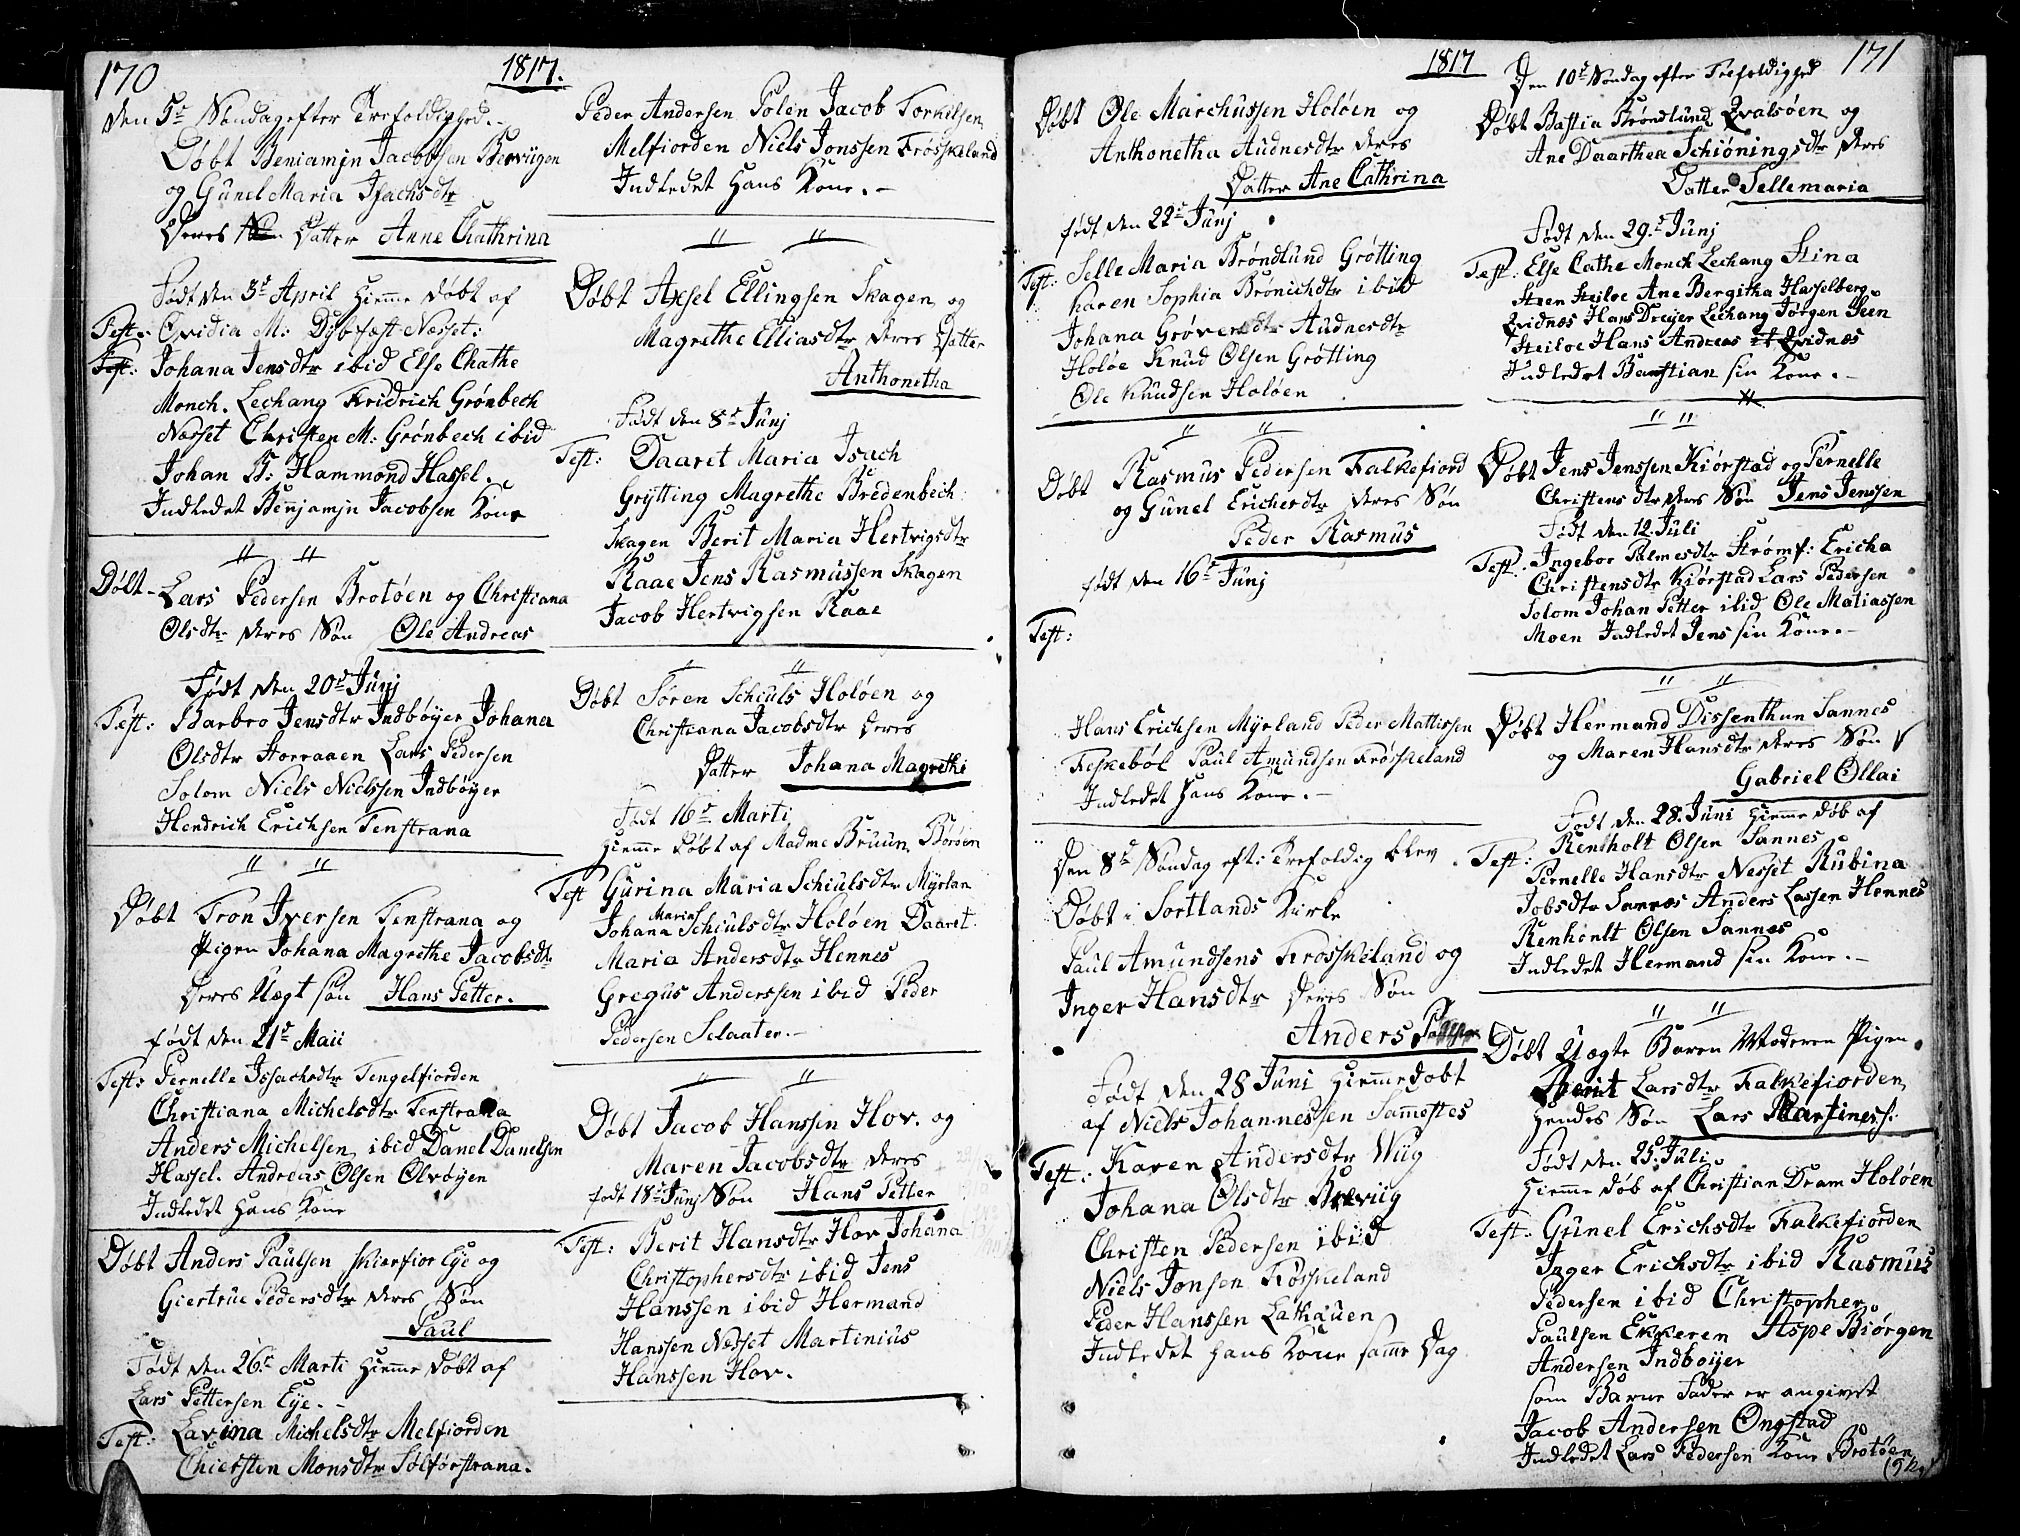 170
1817.
Den 5te Søndag efter Trefoldighed.
Døbt Beniamjn Jacobsen Bervügen
og Günel Maria Isachsdtr
Deres Datter Anne Chathrina
Født den 3d April Hieme døbt af
Test: Ovidia M: Dybfæst Nesset:
Test: Johana Jensdtr ibid Else Chathe
Monch. Lechang Fridrich Grønbech
Nesset Christen M: Grønbech ibid
Johan B: Hammond Hassel.
Indledet Benjamjn Jacobsen Kone
Døbt Lars Pedersen Brotøen og Christiana
Olsdtr deres Søn Ole Andreas
Født den 20d Junj
Test: Barbro Jensdtr Indbøyer Johana
Olsdtr Horraaen Lars Pedersen
Solom Niels Nielssen Indbøyer
Hendrich Erichsen Fenstrana
Døbt Tron Iversen Fenstrana og
Pigen Johana Magrethe Jacobsdtr
Deres Uægt søn Hans Petter.
født den 21d Maii
Test: Pernelle Issachsdtr Tengelfiorden
Christiana Michelsdtr Fenstrana
Anders Michelsen ibid Danel Danelsen
Hassel. Andreas Olsen Olvøyen
Indledet Hans Kone
Døbt Anders Paulsen Skierfior Eye og
Giertrue Pedersdtr deres Søn
Paul
Født den 26d Marti Hieme døbt af
Lars Pettersen Eye.
Test: Lavina Michelsdtr Melfiorden
Chiersten Monsdtr Sølførstrana.
Peder Andersen Polen Jacob Torkelsen
Melfiorden Niels Jonssen Frøskeland
Indledet Hans Kone.
Døbt Axsel Ellingsen Skagen og
Magrethe Elliasdtr deres Datter
Anthonetha
Født den 8d Junj
Test: Daaret Maria Isach
Grytting Magrethe Bredenbech
Skagen Berit Maria Hertvigsdtr
Raae Jens Rasmussen Skagen
Jacob Hertvigsen Raae
Døbt Søren Schiuls Holøen og
Christiana Jacobsdtr deres
Datter Johana Magrethe
Født 16d Marti
Hieme Døbt af Madme Bruun, Børøen
Test Gurina Maria Schiulsdtr Myrlan
Johana Maria Schiulsdtr Holøen Daaret
Maria Andersdtr Hennes
Gregus Anderssen ibid Peder
Pedersen Selaater.
Døbt Jacob Hanssen Hov. og
Maren Jacobsdtr deres
født 18d Junj Søn Hans Petter
Test: Berit Hansdtr Hov Johana
Christophersdtr ibid Jens
Hanssen ibid Hermand
Hanssen Nesset Martinius
Hanssen Hov.
1817
171
Døbt Ole Marchussen Holøen og
Anthonetha Audnesdtr deres
Datter Ane Cathrina
født den 22d Junj
Test: Selle Maria Brøndlund Grøtting
Karen Sophia Brønichdtr ibid
Johana Grøversdtr Audnesdtr
Holøe Knud Olsen Grøtting
Ole Knudsen Holøen
Døbt Rasmus Pedersen Falkefiord
og Gunel Erichsdtr deres Søn
Peder Rasmus
født den 16d Junj
Test:
Hans Erichsen Myrland Peder Mattissen
Feskebøl Paul Amundsen Frøskeland
Indledet Hans Kone.
Den 8de Søndag eft: Trefoldig blev
Døbt i Sortlands Kirke
Paul Amundsens Froskeland og
Inger Hansdtr deres Søn
Anders
Født den 28 Juni Hiemedobt
af Niels Johannessen Samestes
Test: Karen Andersdtr Wiig
Johana Olsdtr Brevüg
Christen Pedersen ibid
Niels Jonsen Frøskeland
Peder Hanssen Lathauen
Indledet Hans Kone same Dag
Den 10d Søndag efter Trefoldighed
Døbt Bastia Brøndlund Qvalsøen og
Ane Daarthea Schiøningsdtr deres
Datter Sellemaria
Født den 29d Junj
Test: Else Cathe Monch Lechang Stina
Steen Steiloe Ane Bergitha Hasselberg
Qvidnæs Hans Dreyer Lechang Jørgen Steen
Steiloe Hans Andreas Qvidnæs
Indledet Bastian sin Kone.
Døbt Jens Jenssen Kiørstad og Pernelle
Christensdtr deres Søn Jens Jenssen
Født den 12. Juli
Test: Ingebor Palmesdtr Strømf: Ericha
Christensdtr Kiørstad Lars Pedersen
Solom Johan Petter ibid Ole Matiassen
Moen Indledet Jens sin Kone.
Døbt Hermand Dissenthun Sannes
og Maren Hansdtr deres Søn
Gabriel Ollai
Født den 28. Juni Hieme døb af
Renholt Olsen Sannes
Test: Pernelle Hansdtr Nesset Rubina
Jobsdtr Sannæs Anders Lassen Hennes
Renholt Olsen Sannes
Indledet Hermand sin Kone.
Døbt Uægte Baren Moderen Pigen
Berit Larsdtr Falkefiorden
Hendes Søn Lars Martinesi:
Født den 25. Juli
Hieme døb af Christian Dram Holøen
Test: Gunel Erichsdtr Falkefiorden
Inger Erichsdtr ibid Rasmus
Pedersen ibid Christopher
Paulsen Ekkeren Aspe Biørgen
Andersen Indboyer
som Barne Fader er angivet
Jacob Andersen Ongstad
Indledet Lars Pedersen Kone Brotøen